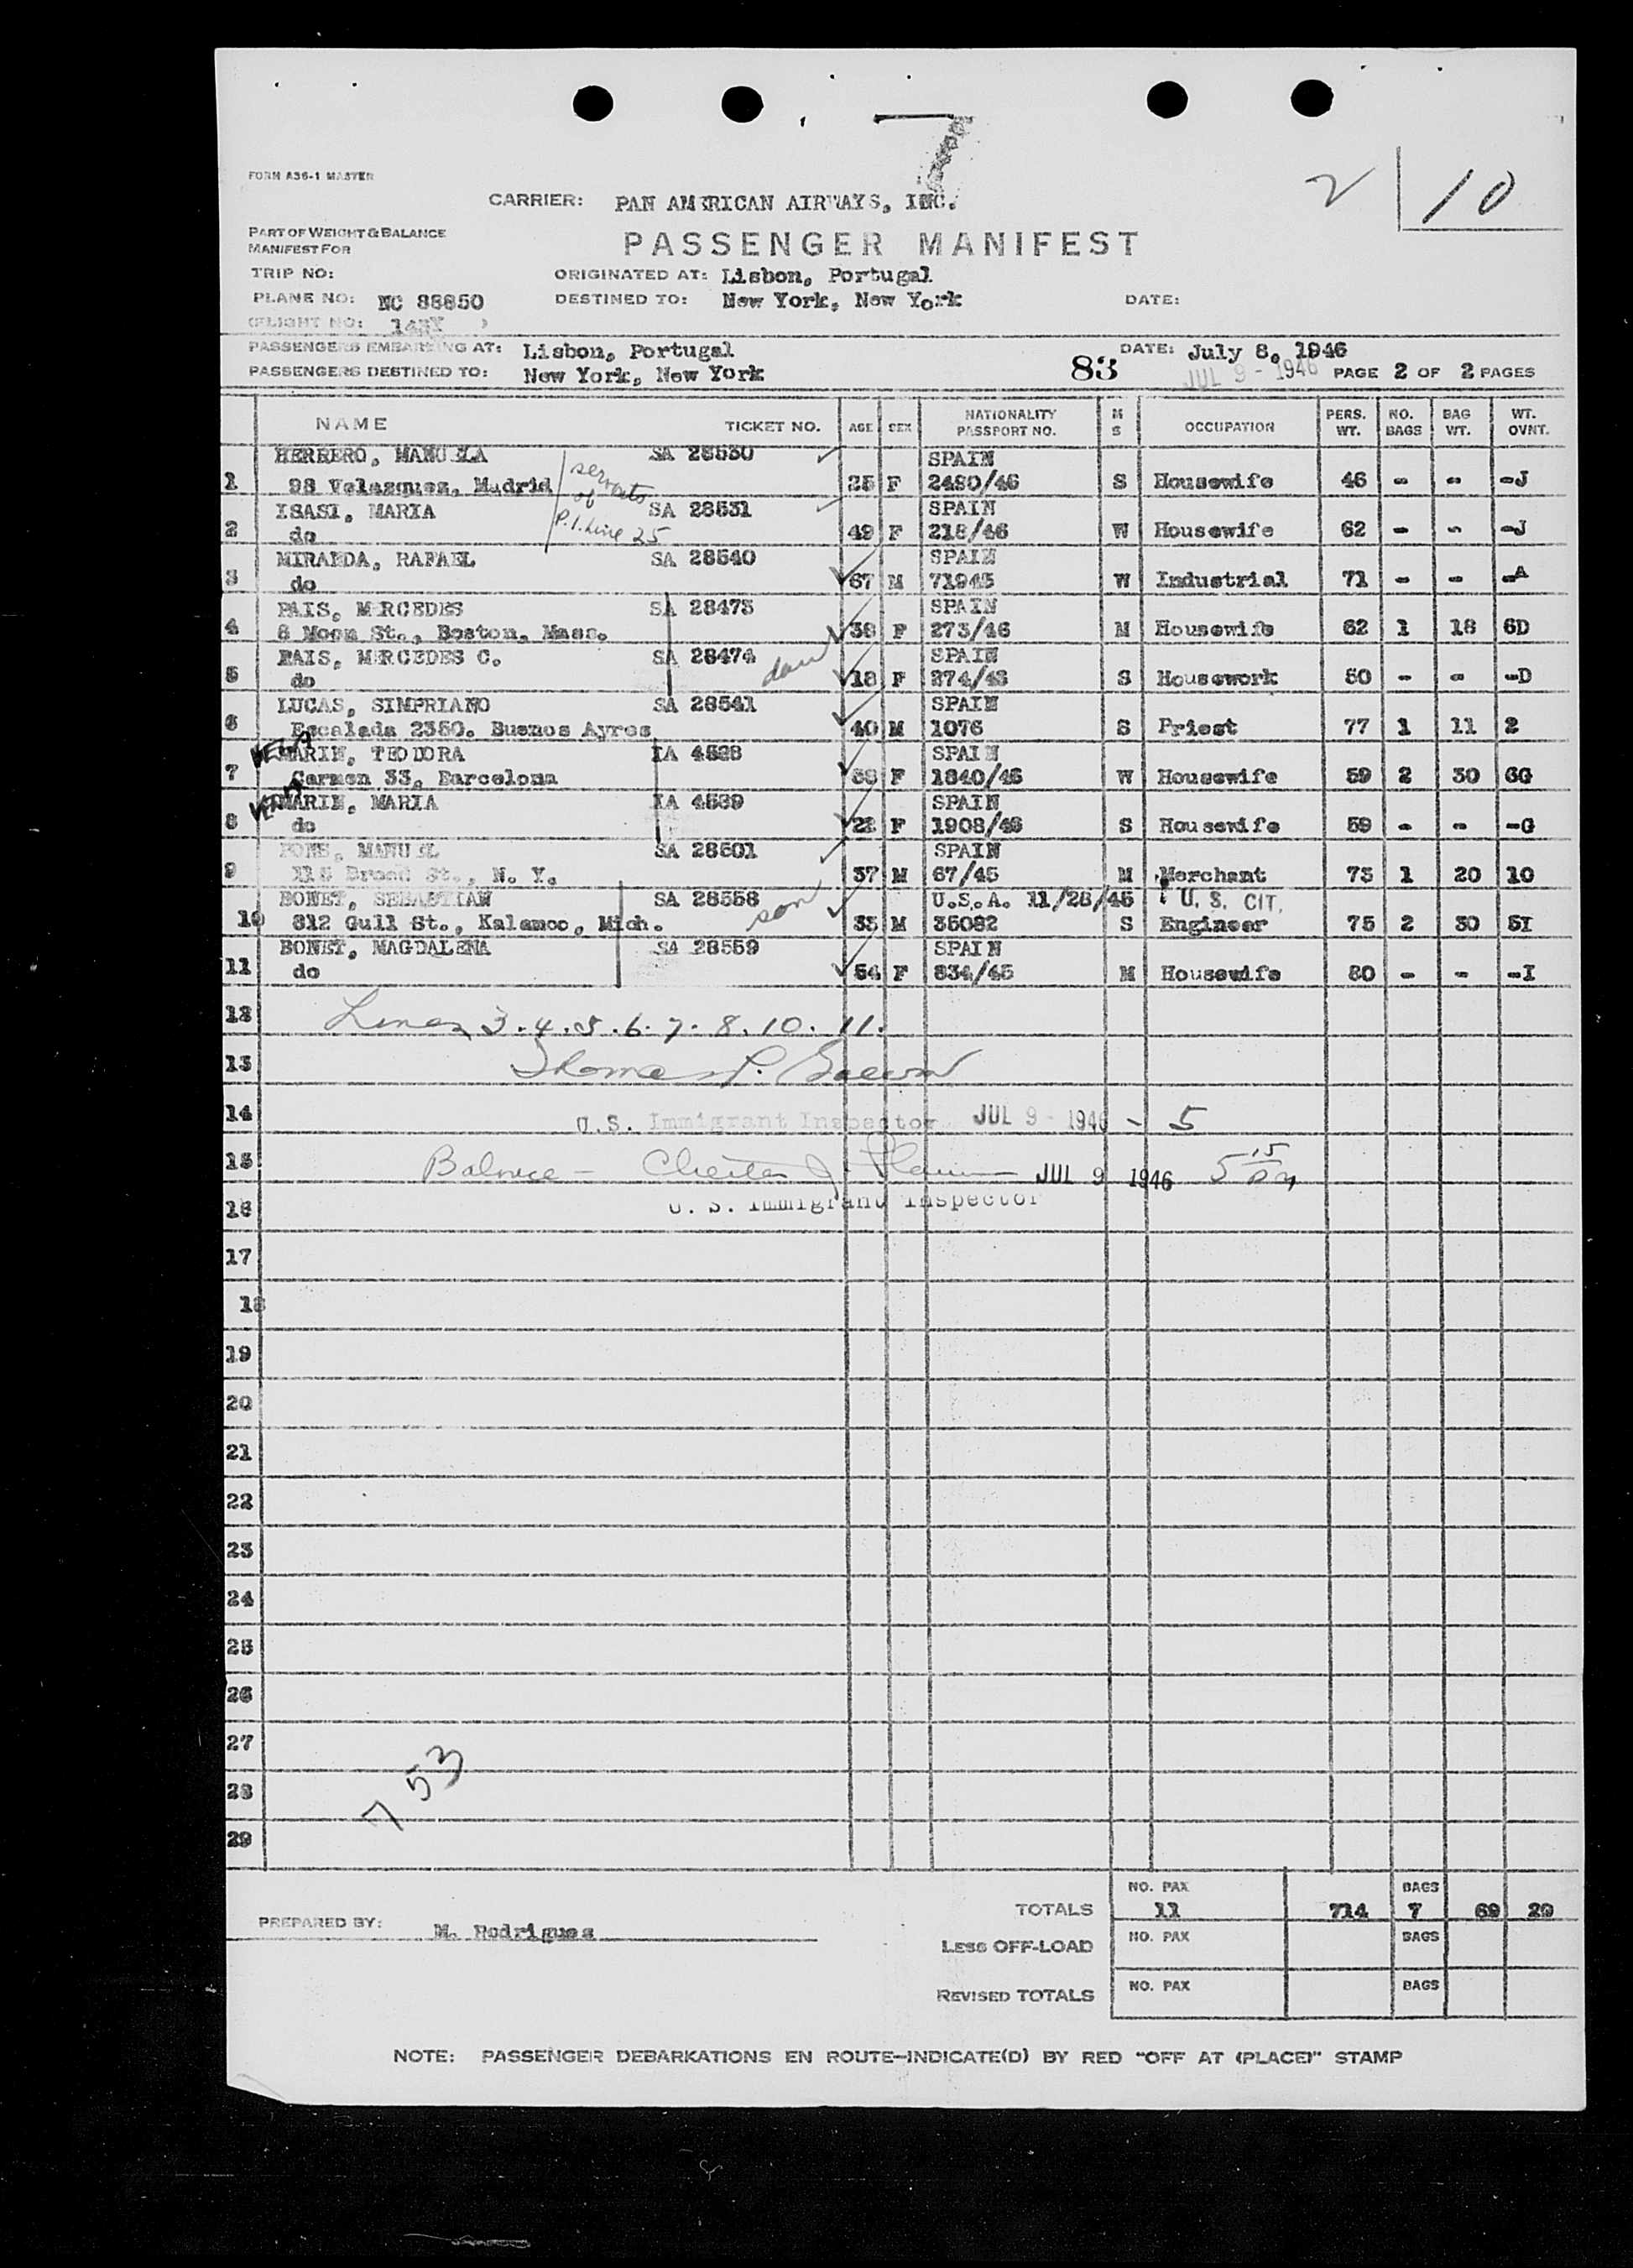 7
FORM A36-1 MASTER
2 10
CARRIER: PAN AMERICAN AIRWAYS, INC.
PART OF WEIGHT & BALANCE
MANIFEST FOR
PASSENGER MANIFEST
TRIP NO:
ORIGINATED AT: Lisbon, Portugal
PLANE NO: NC 88850
DESTINED TO: New York, New York
DATE:
(FLIGHT NO: )
PASSENGERS EMBARKING AT: Lisbon, Portugal
83
DATE: July 8, 1946
PASSENGERS DESTINED TO: New York, New York
JUL 9 - 1946 PAGE 2 OF 2 PAGES
NAME TICKET NO. AGE SEX NATIONALITY PASSPORT NO. M S OCCUPATION PERS. WT. NO. BAGS BAG WT. WT. OVNT.
HERRERO, MANUELA SA 28530 SPAIN
1 98 Velazquez, Madrid 25 F 2480/46 S Housewife 46 - - -J
servants of P.1. Line 25
ISASI, MARIA SA 28531 SPAIN
2 do 49 F 218/46 W Housewife 62 - - -J
MIRANDA, RAFAEL SA 28540 SPAIN
3 do 67 M 71945 W Industrial 71 - - -A
PAIS, MERCEDES SA 28473 SPAIN
4 8 Moon St., Boston, Mass. 38 F 273/46 M Housewife 62 1 18 6D
PAIS, MERCEDES C. SA 28474 dau SPAIN
5 do 18 F 274/46 S Housework 50 - - -D
LUCAS, SIMPRIANO SA 28541 SPAIN
6 Escalada 2350. Buenos Ayres 40 M 1076 S Priest 77 1 11 2
MARIN, TEODORA IA 4528 SPAIN
7 Carmen 33, Barcelona F 1840/46 W Housewife 59 2 30 6G
MARIN, MARIA IA 4529 SPAIN
8 do F 1908/46 S Housewife 59 - - -G
PONS, MANUEL SA 28501 SPAIN
9 115 Broad St., N. Y. 37 M 67/45 M Merchant 73 1 20 10
BONET, SEBASTIAN SA 28558 son U.S.A. 11/28/45 U. S. CIT.
10 812 Gull St., Kalamoo, Mich. 33 M 35082 S Engineer 75 2 30 5I
BONET, MAGDALENA SA 28559 SPAIN
11 do 54 F 834/45 M Housewife 80 - - -I
12 Lines 3.4.5.6.7.8.10.11.
13 Thomas P.
14 U.S. Immigrant Inspector JUL 9 - 1946 - 5
15 Balance - Chester J. JUL 9 1946 5 15 pm
16 U. S. Immigrant Inspector
17
18
19
20
21
22
23
24
25
26
27
28
29
7 53
NO. PAX BAGS
TOTALS 11 714 7 69 29
PREPARED BY: M. Rodrigues
LESS OFF-LOAD NO. PAX BAGS
REVISED TOTALS NO. PAX BAGS
NOTE: PASSENGER DEBARKATIONS EN ROUTE-INDICATE(D) BY RED "OFF AT (PLACE)" STAMP